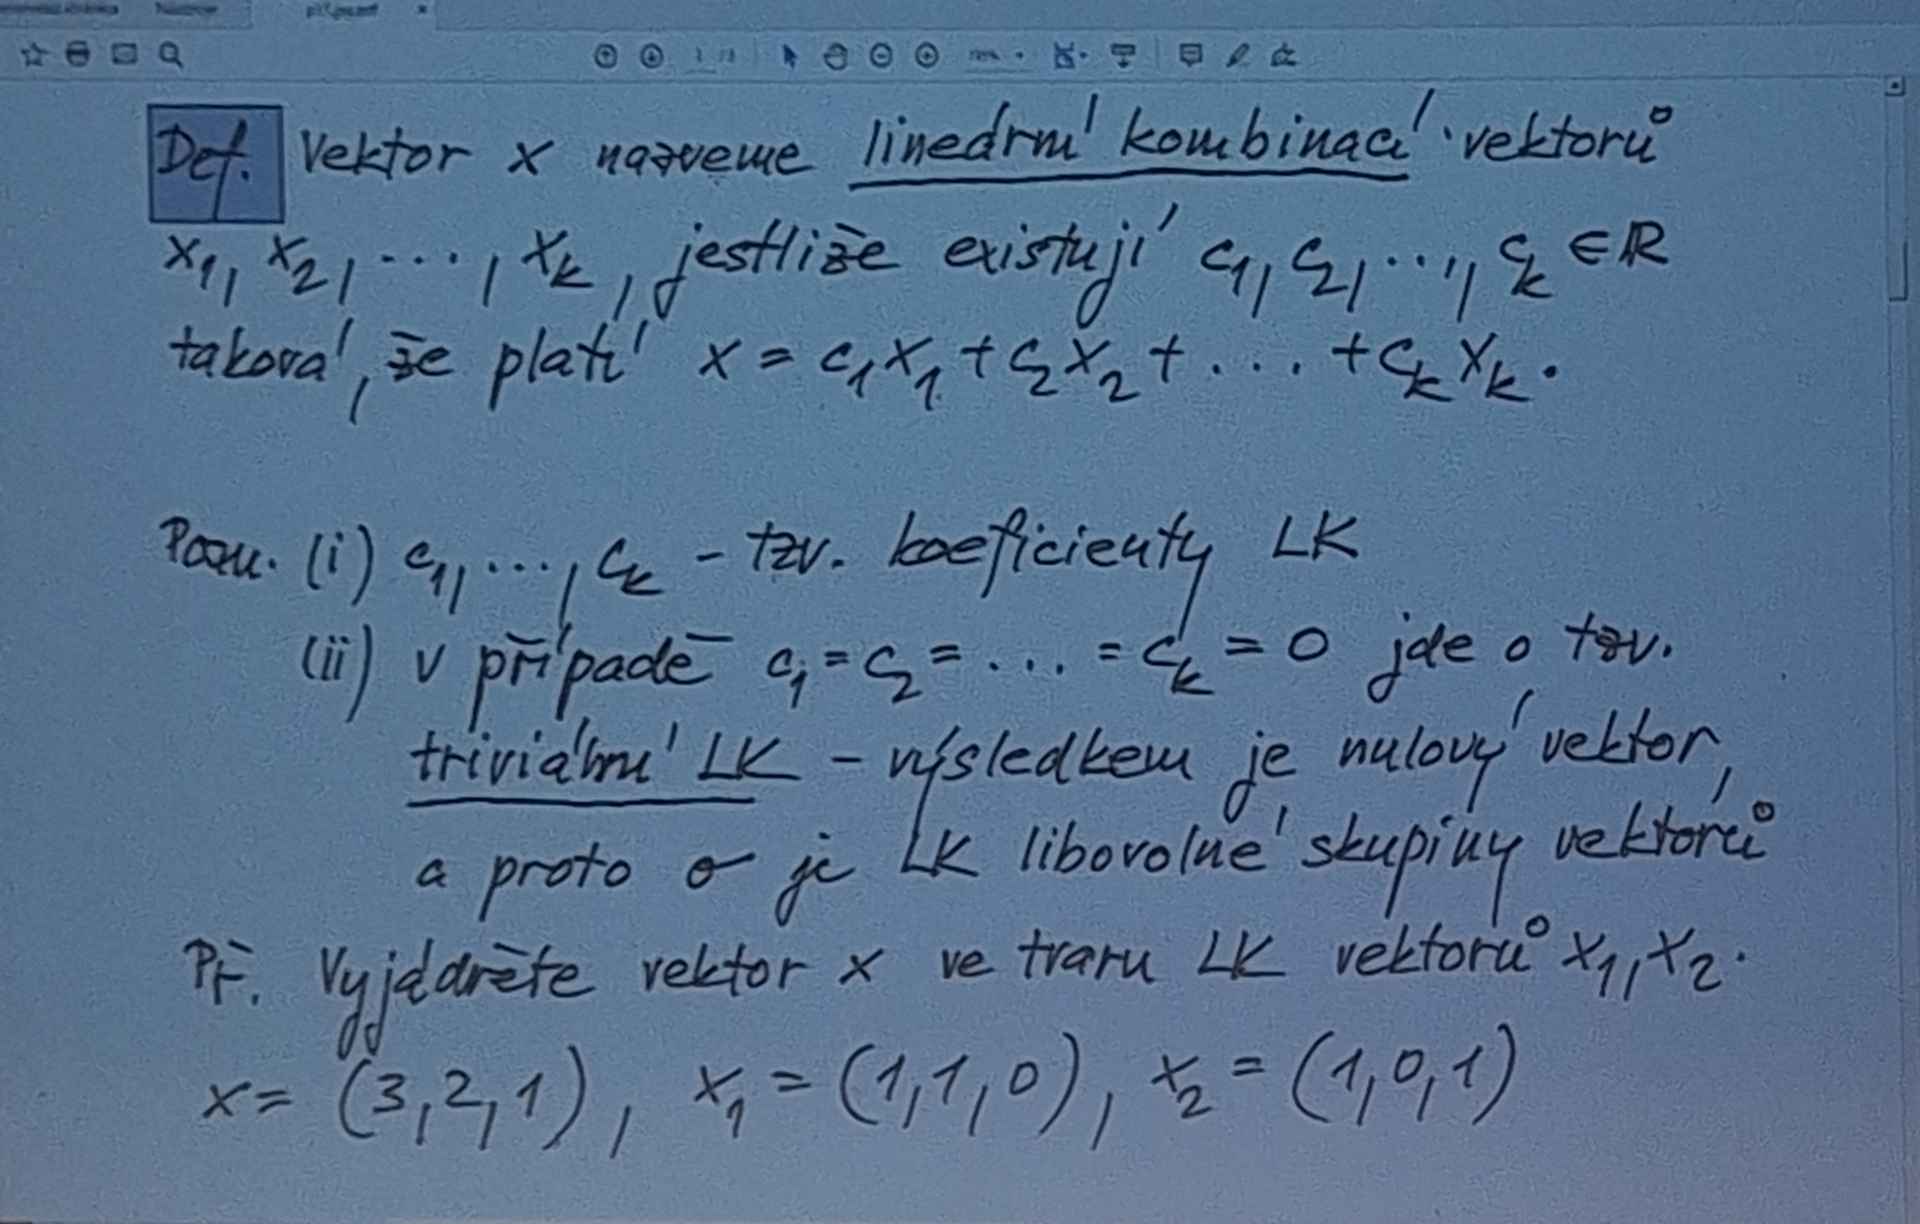 Def. Vektor x nazveme lineární kombinací vektorů
x₁, x₂, ..., xₖ, jestliže existují c₁, c₂, ..., cₖ ∈ ℝ
taková, že platí x = c₁x₁ + c₂x₂ + ... + cₖxₖ.
Pozn. (i) c₁, ..., cₖ - tzv. koeficienty LK
(ii) v případě c₁ = c₂ = ... = cₖ = 0 jde o tzv.
triviální LK - výsledkem je nulový vektor,
a proto o je LK libovolné skupiny vektorů
Př. Vyjádřete vektor x ve tvaru LK vektorů x₁, x₂.
x = (3,2,1), x₁ = (1,1,0), x₂ = (1,0,1)